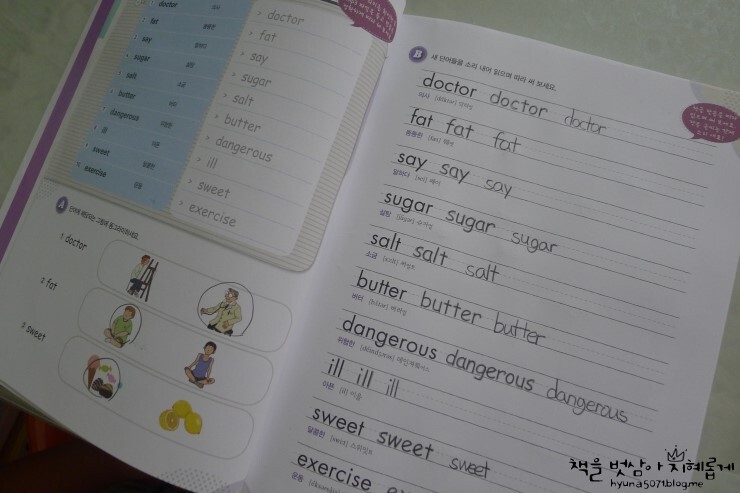 doctor
fat
say
sugar
salt
butter
dangerous
ill
sweet
exercise
doctor
fat
say
sugar
salt
butter
dangerous
ill
sweet
exercise
A
1. doctor
2. fat
3. sweet
B 새 단어들을 소리 내어 읽으며 따라 써 보세요.
doctor doctor doctor
의사
fat fat fat
뚱뚱한
say say say
말하다
sugar sugar sugar
설탕
salt salt salt
소금
butter butter butter
버터
dangerous dangerous dangerous
위험한
ill ill ill
아픈
sweet sweet sweet
달콤한
exercise
운동
책을 벗삼아 지혜롭게
hyuna5071blog.me